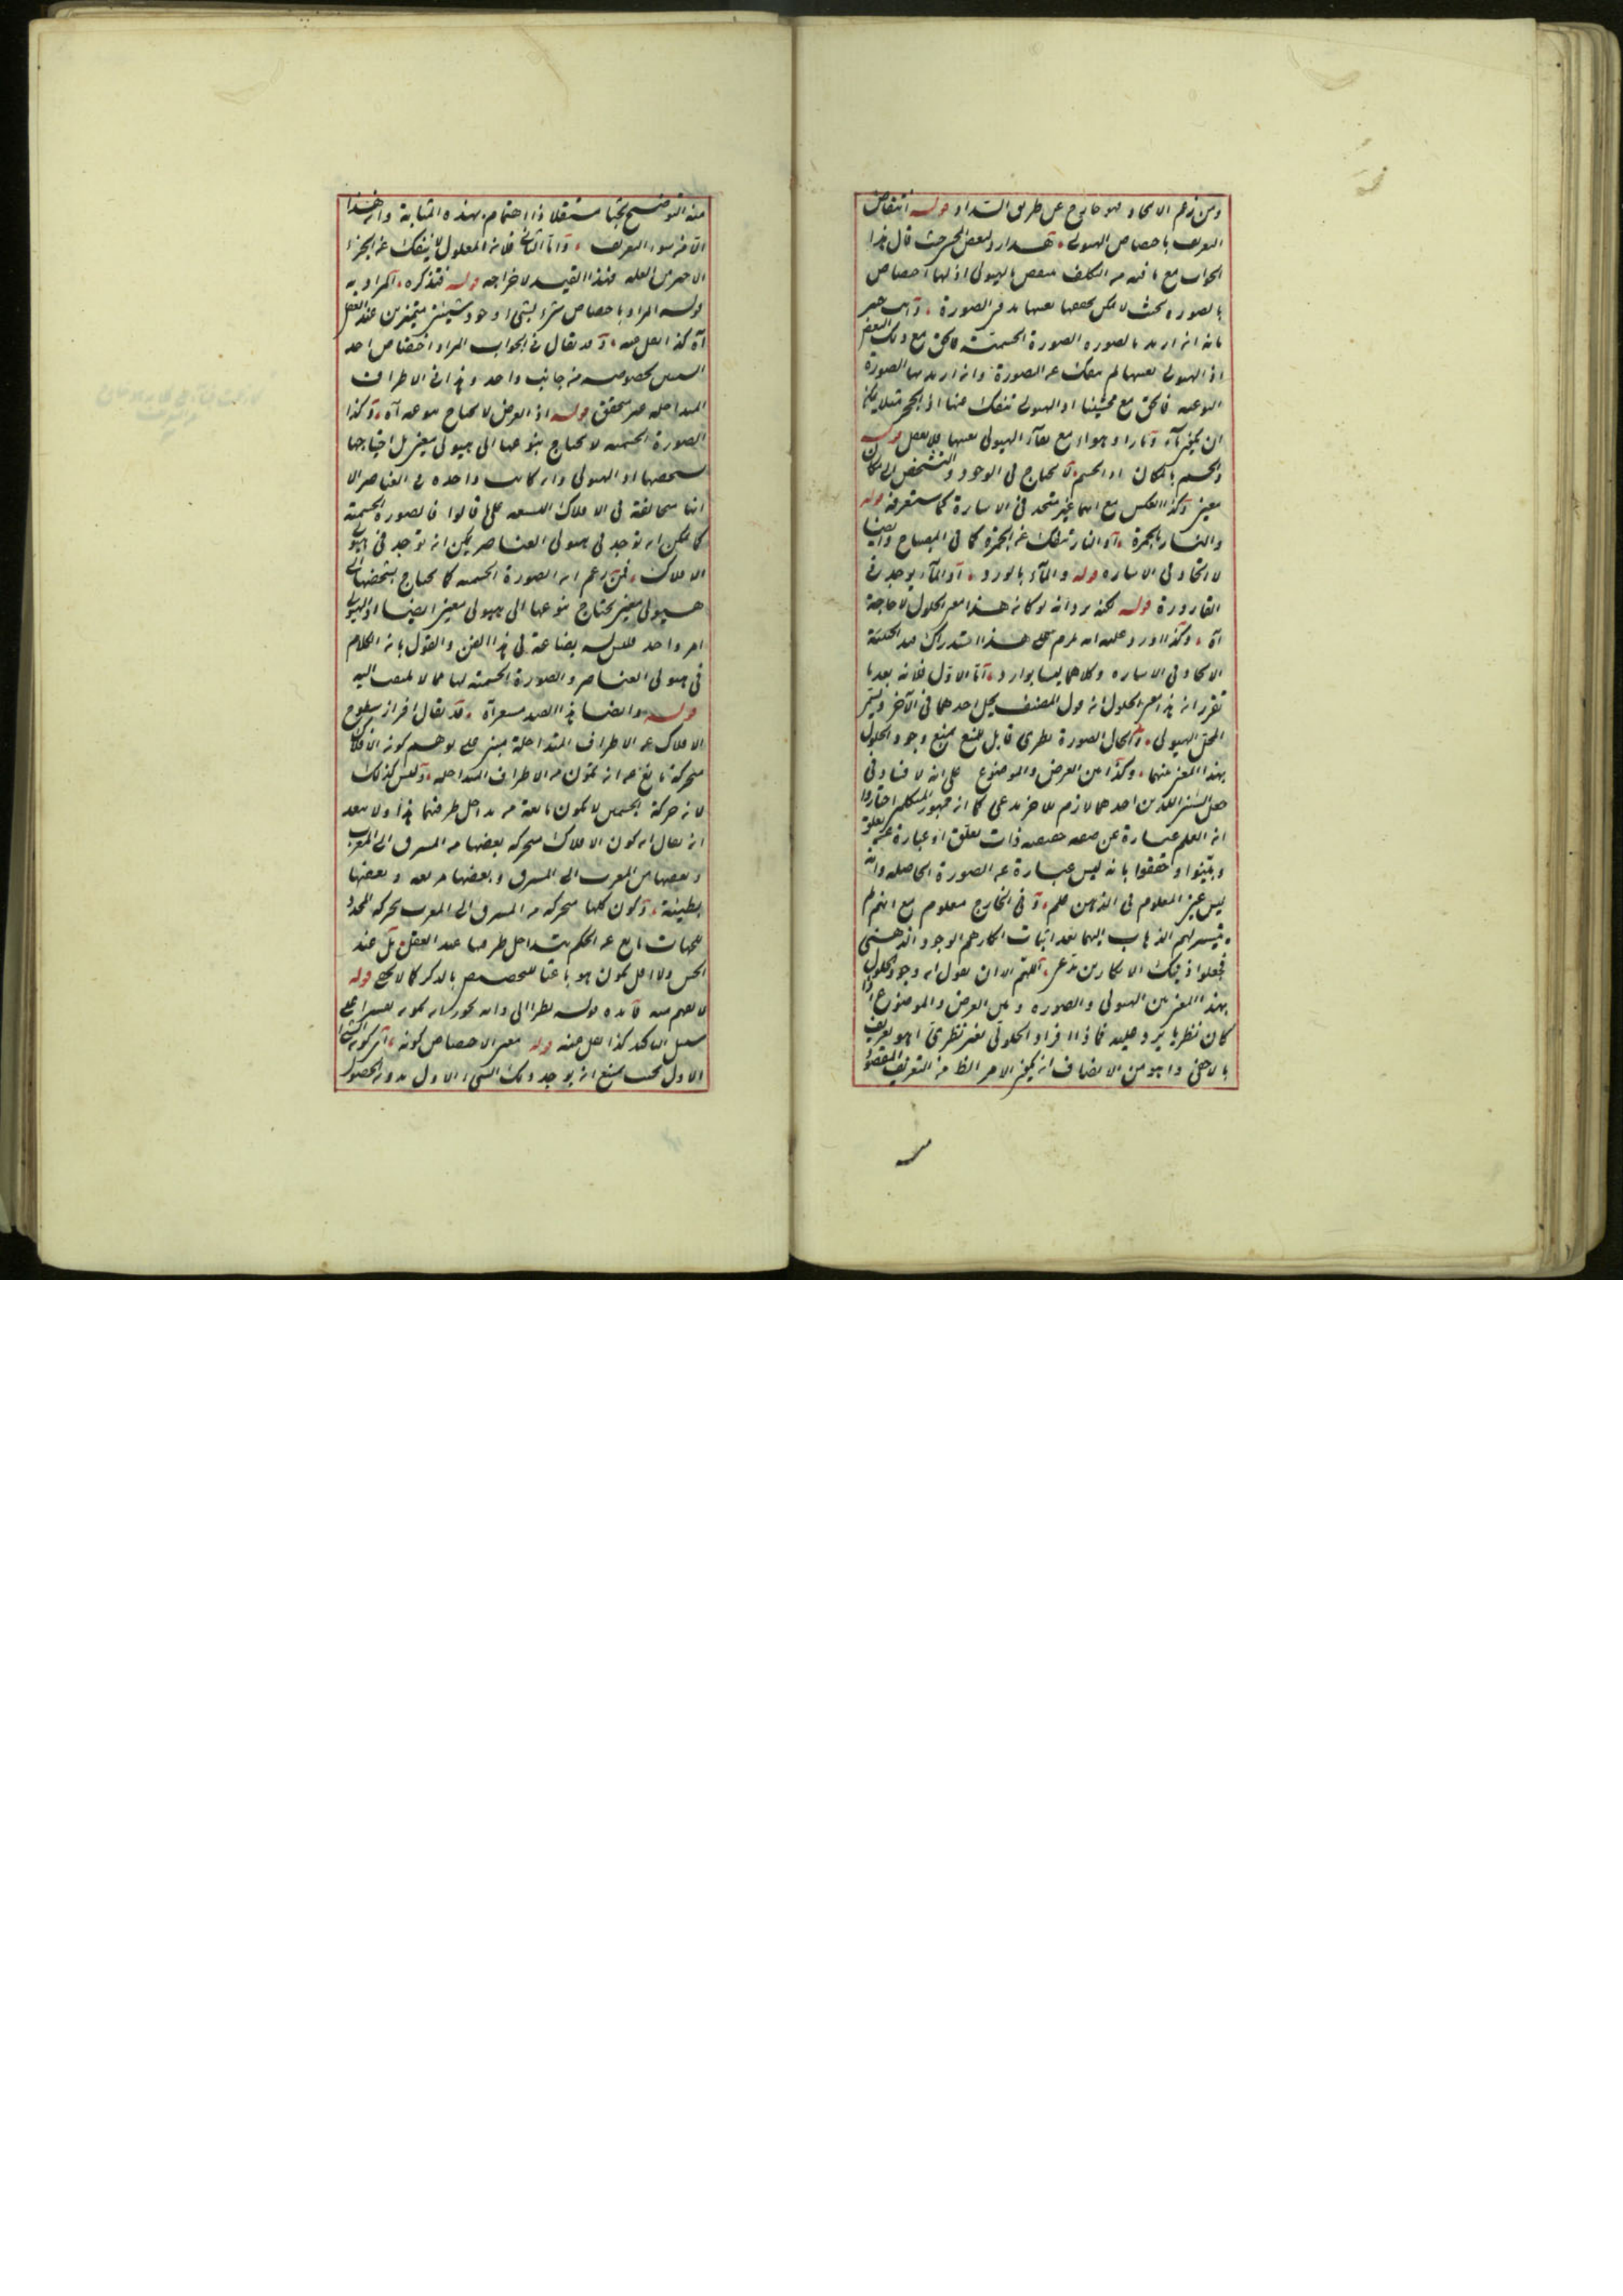 ومن زعم الاتحاد فهو خارج عن طريق السداد قوله انتقاض
التعريف باختصاص الهيولى هذا رد لبعض المحشين حيث قال هذا
الجواب مع ما فيه من التكلف منتقض بالهيولى اذ لها اختصاص
بالصورة بحيث لا يمكن تحققها بعينها بدون الصورة وانت خبير
بانه ان اريد بالصورة الصورة الجسمية فالحق مع ذلك البعض
اذ الهيولى بعينها لم تنفك عن الصورة وان اريد بها الصورة
النوعية فالحق مع محشينا اذ الهيولى تنفك عنها اذ الحجر مثلا يمكن
ان يصير ماء ونارا وهواء مع بقاء الهيولى بعينها قوله
والجسم بالمكان اذ الجسم لا يحتاج في الوجود والتشخص الى مكان
معين وكذا العكس مع انهما غير متحد في الاشارة كما ستعرفه قوله
والنار بالجمرة اذ النار تنفك عن الجمرة كما في المصباح وايضا
لا اتحاد في الاشارة قوله والماء بالورد اذ الماء يوجد في
القارورة قوله لكنه يرد انه لو كان هذا معنى الحلول لا حاجة
آه وكذا اورد عليه انه يلزم على هذا استدراك قيد الحيثية
الاتحاد في الاشارة وكلاهما ليسا بوارد اما الاول فلانه بعد ما
تقرر ان هذا معنى الحلول ان قول المصنف يحل احدهما في الآخر ويسمى
المحل الهيولى والحال الصورة نظري قابل للمنع يمنع وجود الحلول
بهذا المعنى منهما وكذا بين العرض والموضوع على انه لا فساد في
جعل الشيئين اللذين احدهما لازم للآخر مدعى كما ان جمهور المتكلمين اختاروا
ان العلم عبارة عن صفة حقيقية ذات تعلق او عبارة عن تعلق
وبينوا وحققوا بانه ليس عبارة عن الصورة الحاصلة وانه
ليس عين المعلوم في الذهن علم وفي الخارج معلوم مع انهم لم
يتيسر لهم الذهاب اليهما بعد اثبات انكارهم الوجود الذهني
فجعلوا ذينك الانكارين مدعى اللهم الا ان نقول ان وجود الحلول
بهذا المعنى بين الهيولى والصورة وبين العرض والموضوع اذا
كان نظريا يرد عليه فماذا افراد الحلول نعم نظري اهو تعريف
بالاخفى وما هو من الانصاف ان يميز الامر الظ من التعريف المقصود
منه التوضيح بحثا مستقلا ذا اهتمام بهذه المثابة وان هذا
الا من سوء التعريف واما الثاني فلان المعلول لا ينفك عن الجزء
الاخير من العلة فهذا القيد لاخراجه قوله فتذكره المراد به
قوله المراد باختصاص شيء بشيء وجود شيئين متميزين عند العقل
آه كذا نقل عنه وقد يقال في الجواب المراد اختصاص احد
الشيئين بخصوصه من جانب واحد وهذا في الاطراف
المتداخلة غير متحقق قوله اذ العرض لا يحتاج بنوعه آه وكذا
الصورة الجسمية لا تحتاج بنوعها الى هيولى معين بل احتياجها
بشخصها اذ الهيولى وان كانت واحدة في العناصر الا
انها متخالفة في الافلاك التسعة على ما قالوا فالصورة الجسمية
كما يمكن ان توجد في هيولى العناصر يمكن ان توجد في هيولى
الافلاك فمن زعم ان الصورة الجسمية كما تحتاج بشخصها الى
هيولى معين يحتاج بنوعها الى هيولى معين ايضا اذ الهيولى
امر واحد فليس له بضاعة في هذا الفن والقول بان الكلام
في هيولى العناصر والصورة الجسمية لها مما لا يلتفت اليه
قوله وايضا هذا القيد مشعر آه قد يقال افراز سطوح
الافلاك عن الاطراف المتداخلة مبني على توهم كون الافلاك
متحركة مانع عن ان تكون من الاطراف المتداخلة وليس كذلك
لان حركة الجسمين لا تكون مانعة من تداخل طرفيهما هذا ولا يبعد
ان يقال ان كون الافلاك متحركة بعضها من المشرق الى المغرب
وبعضها من المغرب الى المشرق وبعضها سريعة وبعضها
بطيئة وكون كلها متحركة من المشرق الى المغرب بحركة المحدد
للجهات مانع عن الحكم بتداخل طرفيها عند العقل بل عند
الحس ولا اقل يكون هو باعثا للتخصيص بالذكر كما لا يخفى قوله
لا يفهم منه فائدة قوله نظرا الى وانه يجوز ان يكون تفسيرا على
سبيل التأكيد كذا نقل عنه قوله معنى الاختصاص كونه اي كون الشيء
الاول بحيث يمتنع ان يوجد ذلك الشيء الاول بدون الحصول